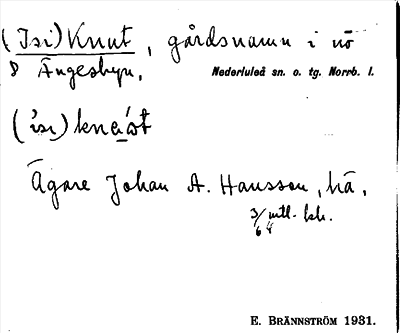 (Isi) Knut, gårdsnamn i nö
D Ängesbyn. Nederluleå sn. o. tg. Norrb. l.
Ägare Johan A. Hansson, hä.
3/64 mtl.
E. BRÄNNSTRÖM 1931.